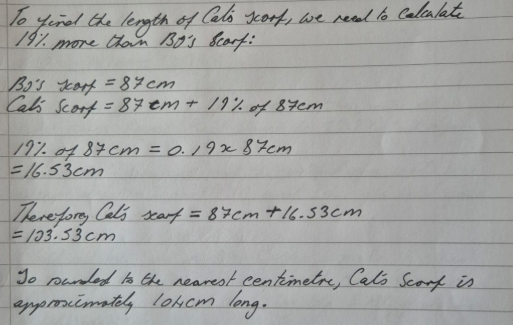 To find the length of Cat's scarf, we need to calculate
19% more than Bo's Scarf:
Bo's scarf = 87cm
Cat's Scarf = 87cm + 19% of 87cm
19% of 87cm = 0.19x 87cm
= 16.53cm
Therefore, Cat's scarf = 87cm + 16.53cm
= 103.53cm
So rounded to the nearest centimetre, Cat's Scarf is
approximately 104cm long.